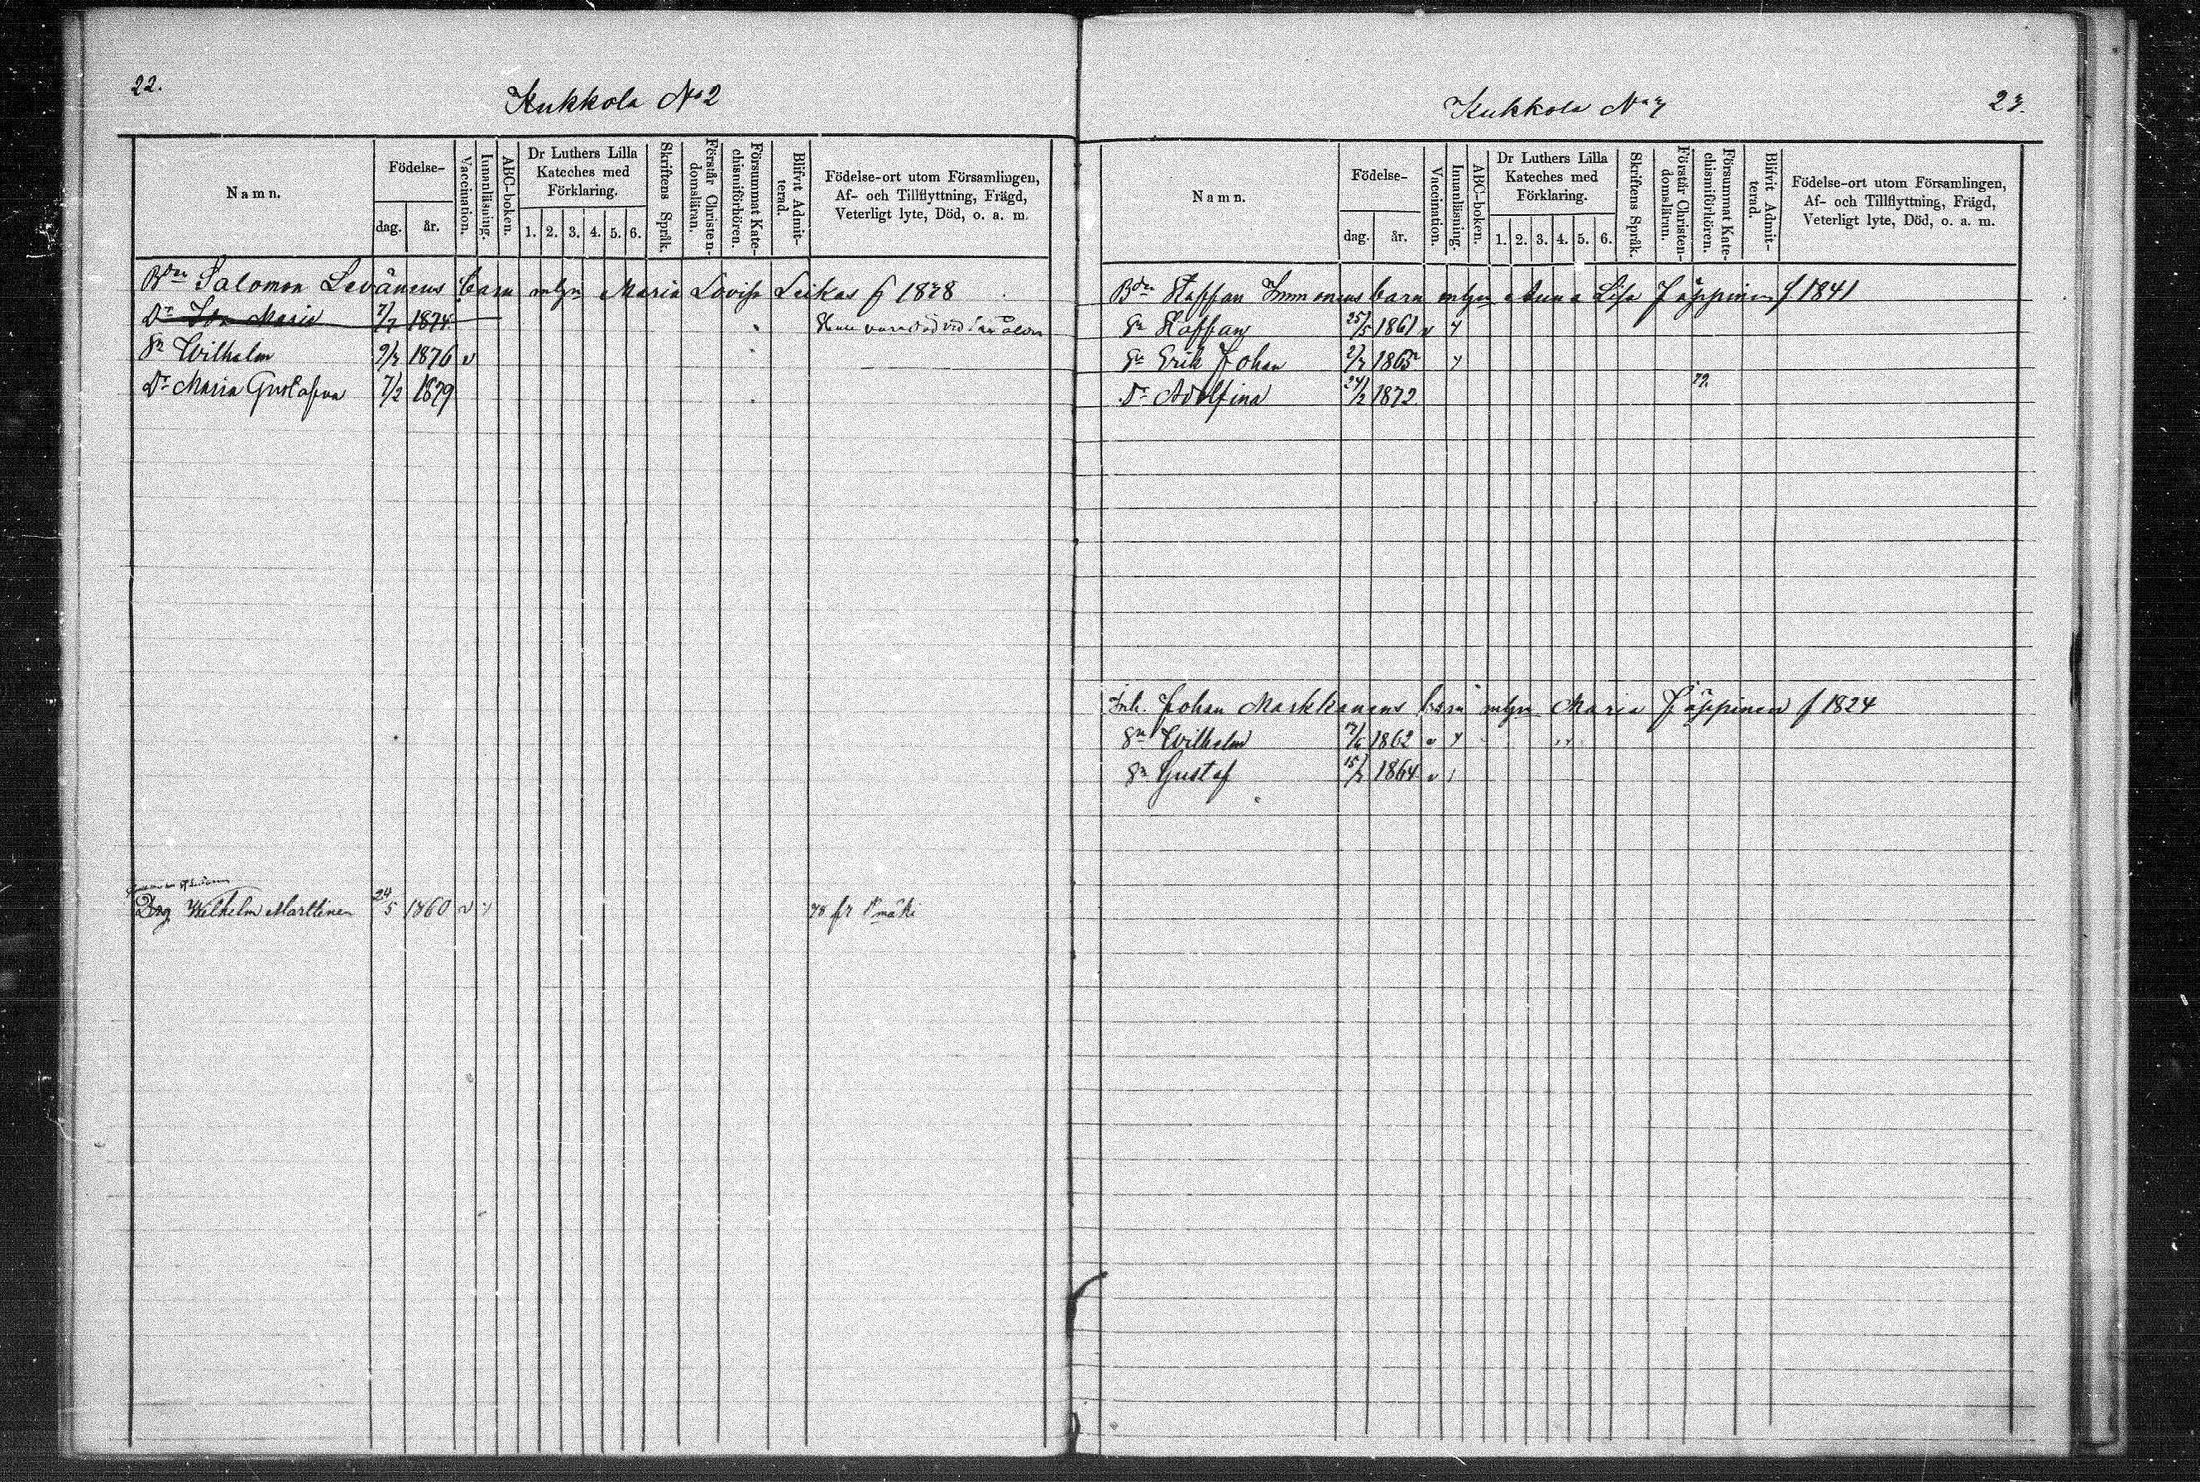 22.
Kukkola No 2
Namn.
Födelse-
dag.
år.
Vaccination.
Innanläsning.
ABC-boken.
Dr Luthers Lilla
Kateches med
Förklaring.
1. 2. 3. 4. 5. 6.
Skriftens Språk.
Förstår Christen-
domsläran.
Försummat Kate-
chismiförhören.
Blifvit Admit-
terad.
Födelse-ort utom Församlingen,
Af- och Tillflyttning, Frägd,
Veterligt lyte, Död, o. a. m.
Bden Salomon Levänens barn mhn Maria Lovisa Leikas f 1838
Dr Ida Maria 7/7 1874
Sn Wilhelm 9/7 1876 v
Dr Maria Gustafva 7/2 1879
Drg Wilhelm Marttinen 24/5 1860 v y 78 fr Pmäki
23.
Kukkola No 7
Namn.
Födelse-
dag.
år.
Vaccination.
Innanläsning.
ABC-boken.
Dr Luthers Lilla
Kateches med
Förklaring.
1. 2. 3. 4. 5. 6.
Skriftens Språk.
Förstår Christen-
domsläran.
Försummat Kate-
chismiförhören.
Blifvit Admit-
terad.
Födelse-ort utom Församlingen,
Af- och Tillflyttning, Frägd,
Veterligt lyte, Död, o. a. m.
Bden Staffan Immonens barn mhn Anna Lisa Jäppinen f 1841
Sn Staffan 25/5 1861 v y
Sn Erik Johan 2/7 1865 y
Dr Adolfina 24/2 1872 79.
Inh. Johan Markkanens barn mhn Maria Jäppinen f 1824
Sn Wilhelm 7/6 1862 v y
Sn Gustaf 15/7 1864 v